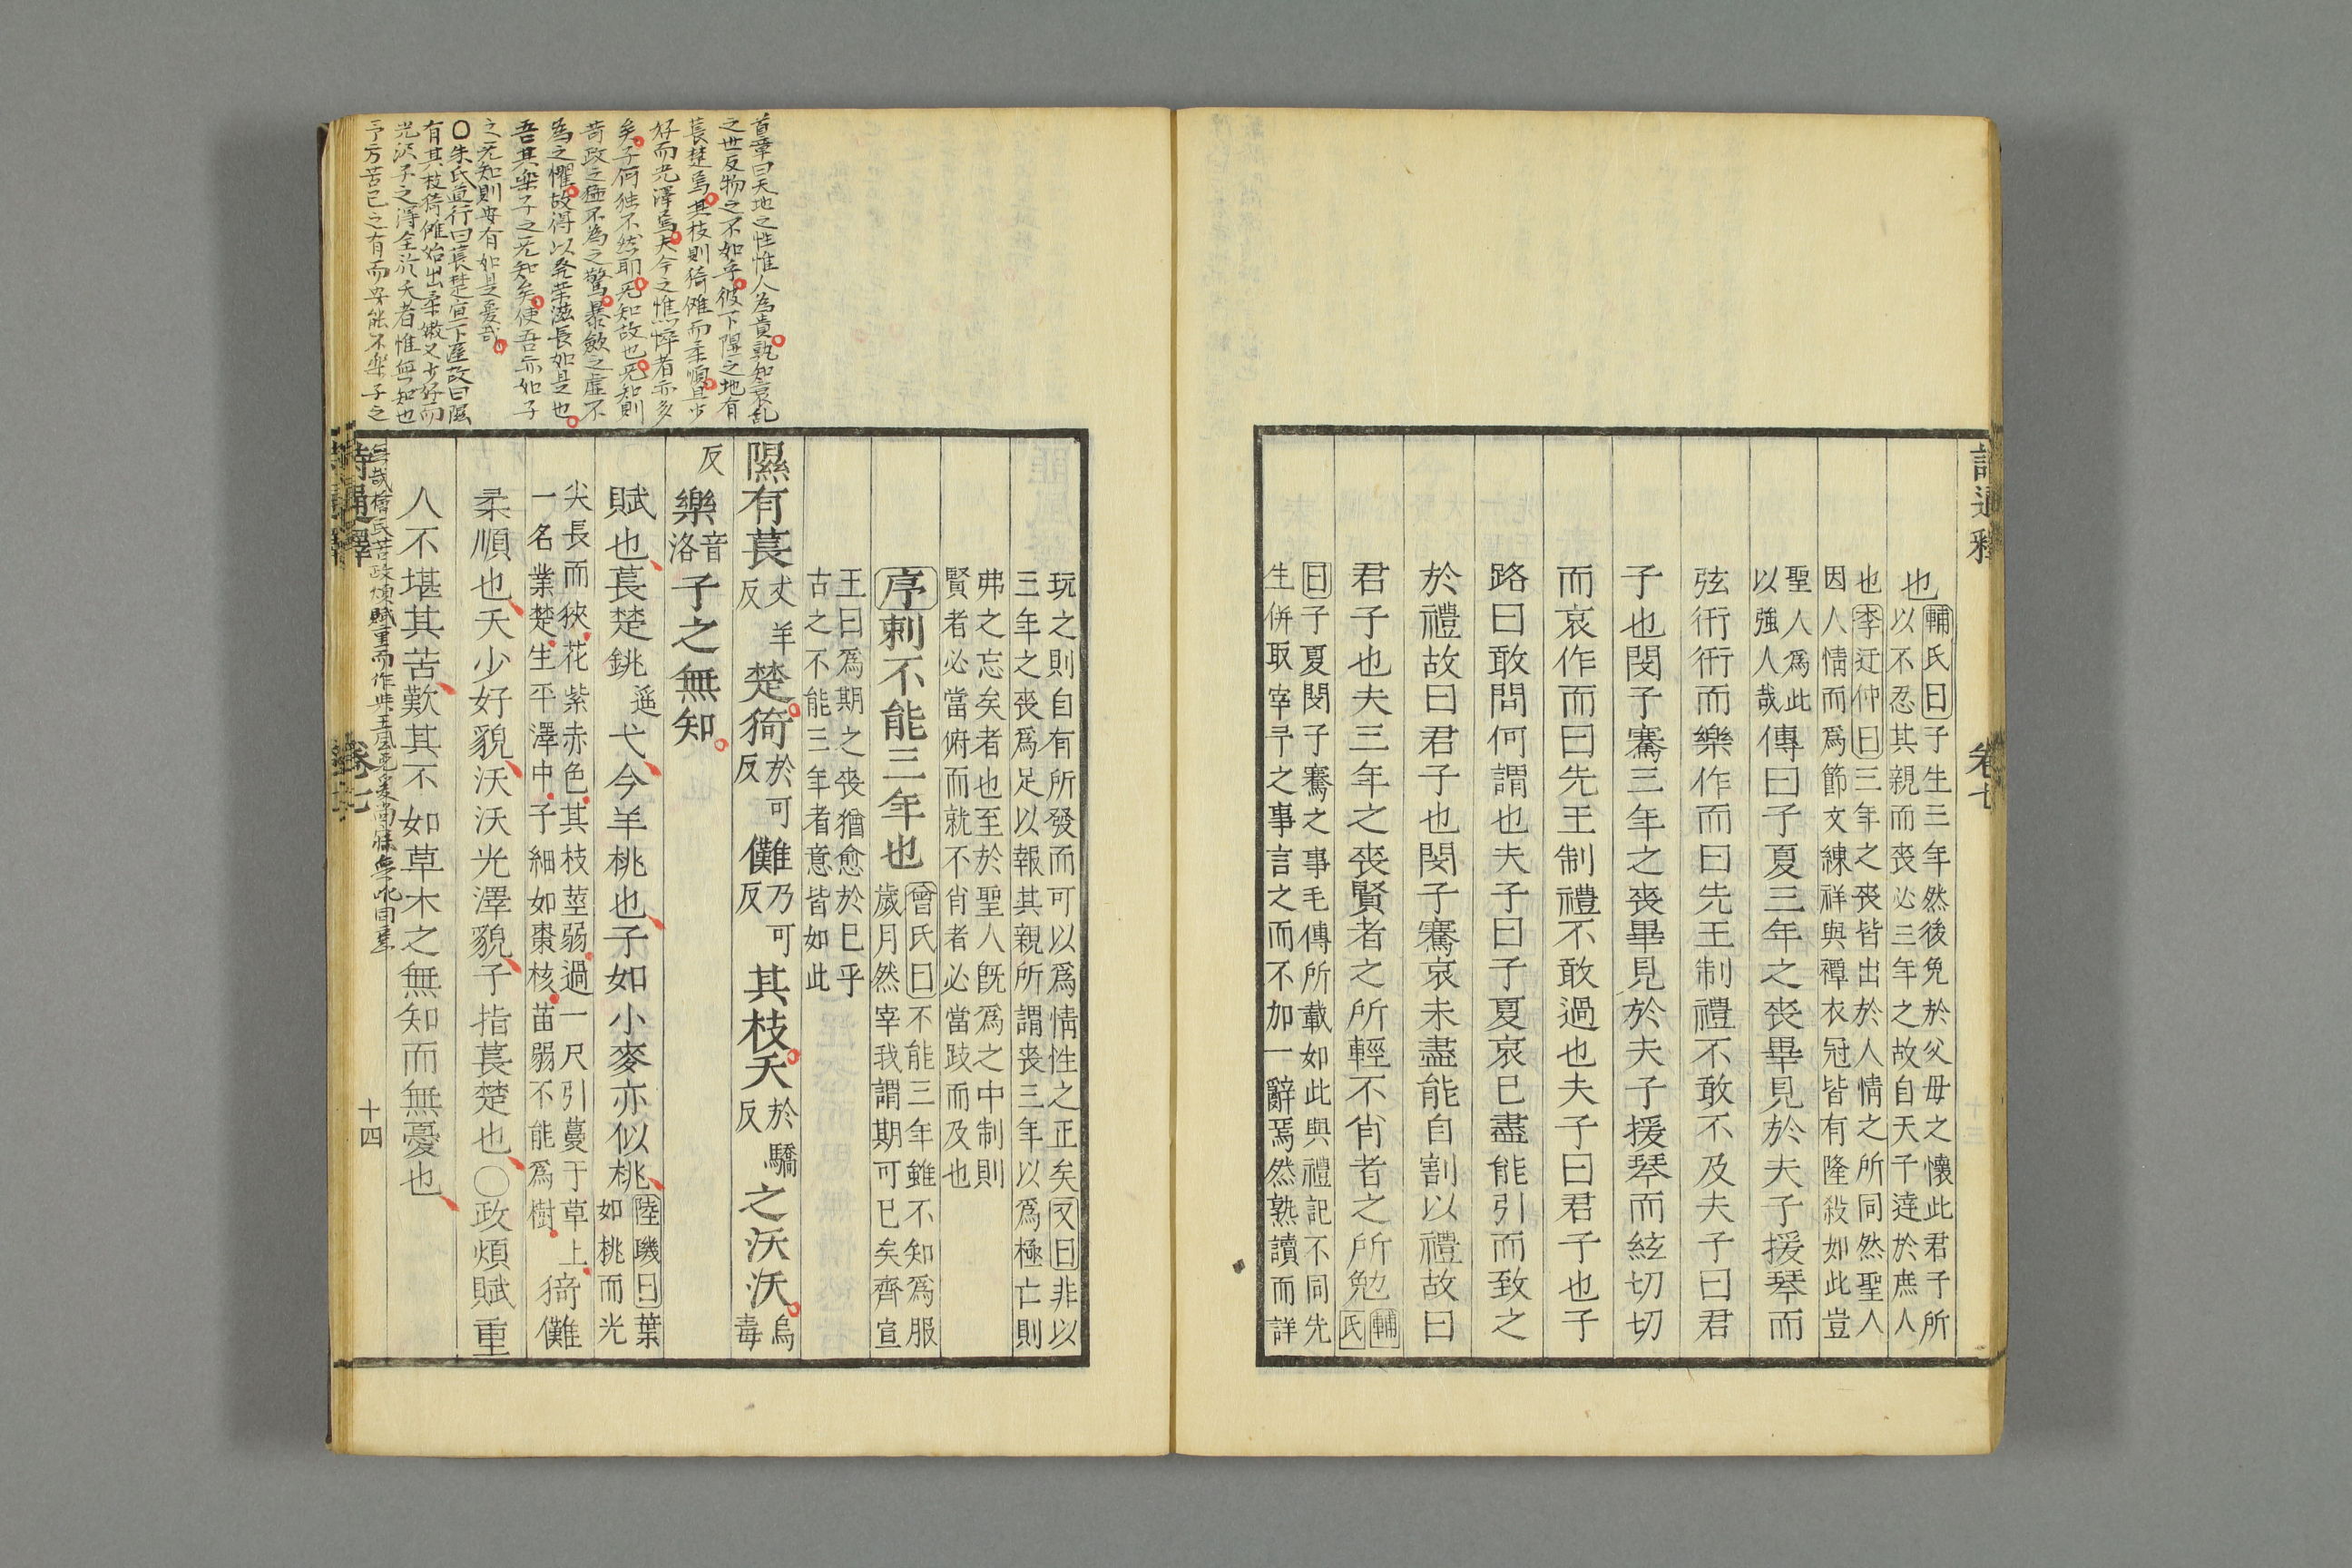 詩通釋
卷七
也
輔氏曰子生三年然後免於父母之懷此君子所
以不忍其親而喪必三年之故自天子達於庶人
也李迂仲曰三年之喪皆出於人情之所同然聖人
因人情而爲節文練祥與禫衣冠皆有隆殺如此豈
聖人爲此
以強人哉
傳曰子夏三年之喪畢見於夫子援琴而
弦衎衎而樂作而曰先王制禮不敢不及夫子曰君
子也閔子騫三年之喪畢見於夫子援琴而絃切切
而哀作而曰先王制禮不敢過也夫子曰君子也子
路曰敢問何謂也夫子曰子夏哀已盡能引而致之
於禮故曰君子也閔子騫哀未盡能自割以禮故曰
君子也夫三年之喪賢者之所輕不肖者之所勉
輔氏
曰子夏閔子騫之事毛傳所載如此與禮記不同先
生併取宰予之事言之而不加一辭焉然熟讀而詳
玩之則自有所發而可以爲情性之正矣又曰非以
三年之喪爲足以報其親所謂喪三年以爲極亡則
弗之忘矣者也至於聖人旣爲之中制則
賢者必當俯而就不肖者必當跂而及也
序刺不能三年也
曾氏曰不能三年雖不知爲服
歲月然宰我謂期可已矣齊宣
王曰爲期之喪猶愈於已乎
古之不能三年者意皆如此
隰有萇
丈羊
反
楚猗
於可
反
儺
乃可
反
其枝夭
於驕
反
之沃沃
烏毒
反
樂
音洛
子之無知
賦也萇楚銚
遥
弋今羊桃也子如小麥亦似桃
陸璣曰葉
如桃而光
尖長而狹花紫赤色其枝莖弱過一尺引蔓于草上
一名業楚生平澤中子細如棗核苗弱不能爲樹
猗儺
柔順也夭少好貌沃沃光澤貌子指萇楚也○政煩賦重
人不堪其苦歎其不如草木之無知而無憂也
首章曰天地之性惟人為貴孰知衰乱
之世反物之不如乎彼下隰之地有
萇楚焉其枝則猗儺而柔順且少
好而光澤焉夫今之憔悴者亦多
矣子何独不然耶无知故也无知則
苛政之極不為之驚暴斂之虐不
為之懼故得以発荣滋長如是也
吾其樂子之无知矣使吾亦如子
之无知則安有如是憂哉
○朱氏道行曰萇楚宜下湿故曰隰
有其枝猗儺始出柔嫩又少好而
光沃子之得全於天者惟無知也
予方苦己之有而安能不樂子之
詩通釋
卷七
十四